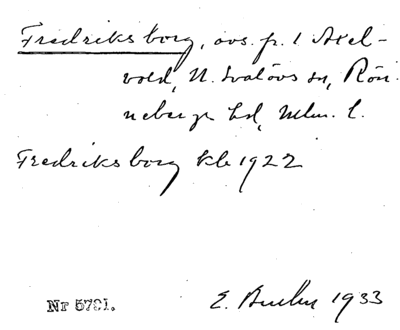 Fredriksborg, avs. fr. 1 Axel-
vold, N. Svalövs sn, Rön-
nebergs hd, Mlm. l.
Fredriksborg kb 1922
Nr 5791.
E. 1933